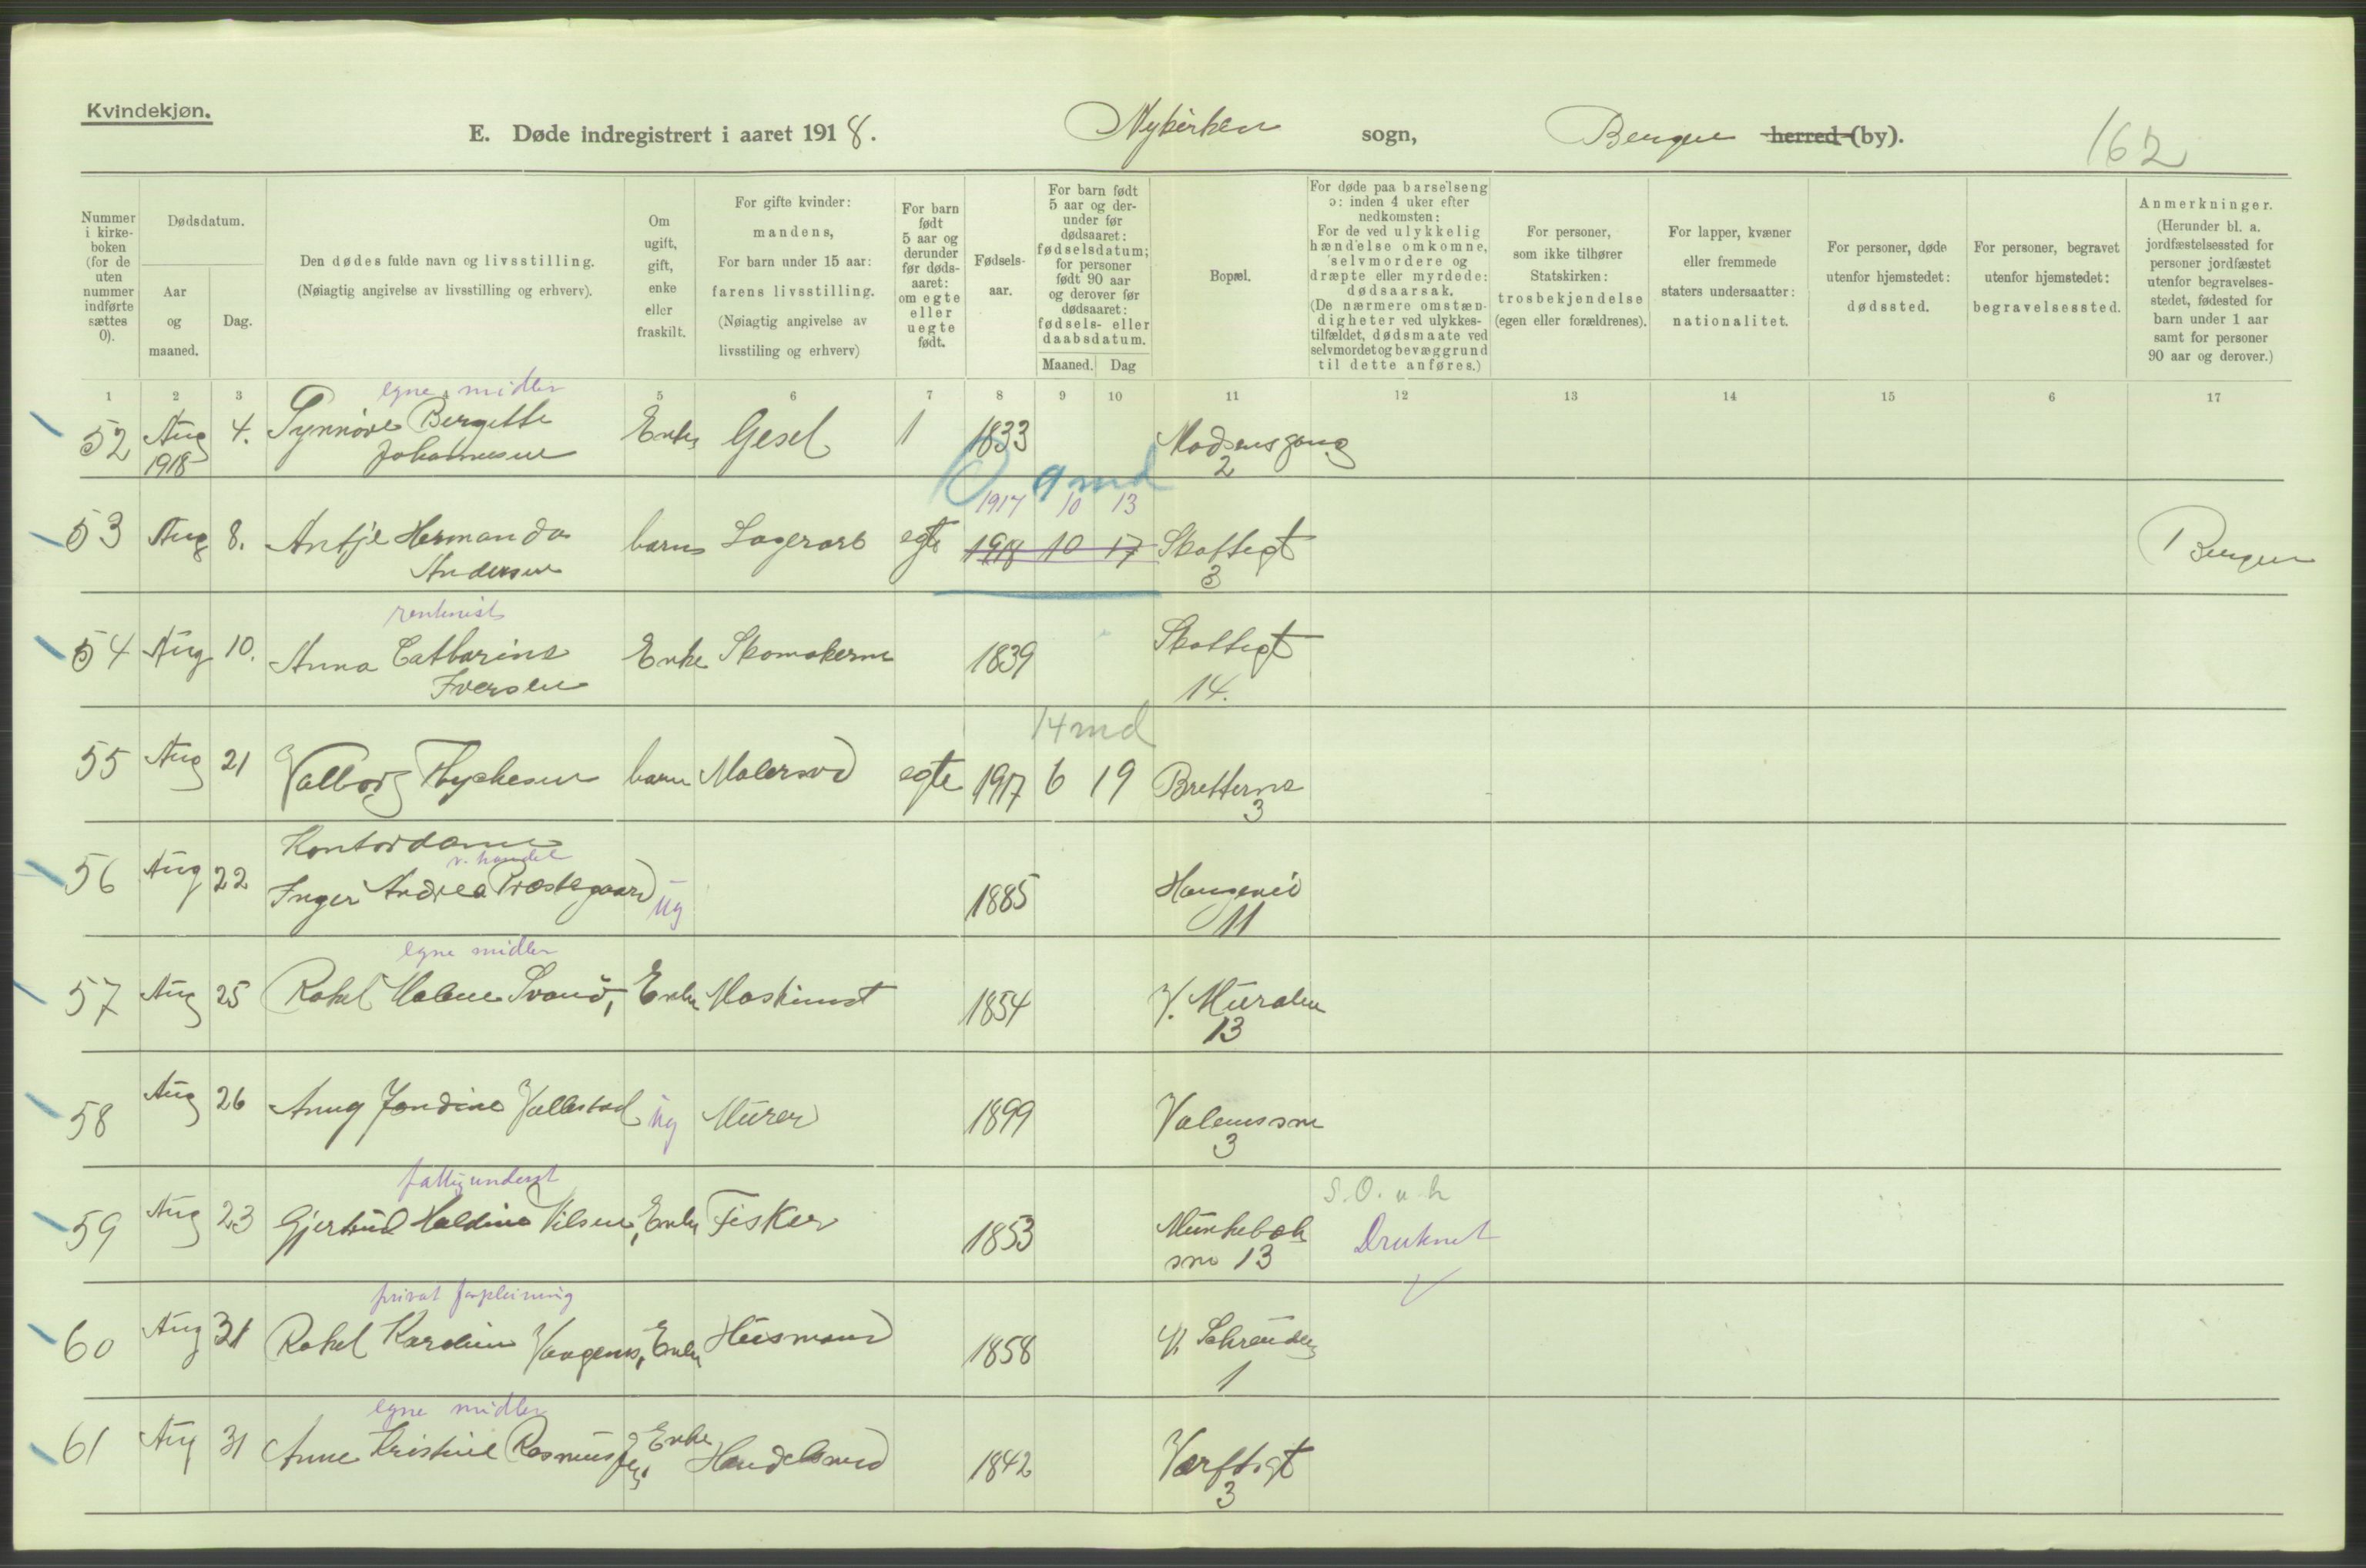 Kvindekjøn.
E. Døde indregistrert i aaret 1918. Nykirken sogn, Bergen herred (by). 162
Nummer i kirkeboken (for de uten nummer indførte sættes 0).
Dødsdatum.
Aar og maaned.
Dag.
Den dødes fulde navn og livsstilling.
(Nøiagtig angivelse av livsstilling og erhverv).
Om ugift, gift, enke eller fraskilt.
For gifte kvinder: mandens,
For barn under 15 aar: farens livsstilling.
(Nøiagtig angivelse av livsstiling og erhverv)
For barn født 5 aar og derunder før dødsaaret: om egte eller uegte født.
Fødselsaar.
For barn født 5 aar og derunder før dødsaaret: fødselsdatum; for personer født 90 aar og derover før dødsaaret: fødsels- eller daabsdatum.
Maaned. Dag
Bopæl.
For døde paa barselseng ɔ: inden 4 uker efter nedkomsten:
For de ved ulykkelig hændelse omkomne, selvmordere og dræpte eller myrdede: dødsaarsak.
(De nærmere omstændigheter ved ulykkestilfældet, dødsmaate ved selvmordet og bevæggrund til dette anføres.)
For personer, som ikke tilhører Statskirken: trosbekjendelse (egen eller forældrenes).
For lapper, kvæner eller fremmede staters undersaatter: nationalitet.
For personer, døde utenfor hjemstedet: dødssted.
For personer, begravet utenfor hjemstedet: begravelsessted.
Anmerkninger.
(Herunder bl. a. jordfæstelsessted for personer jordfæstet utenfor begravelsesstedet, fødested for barn under 1 aar samt for personer 90 aar og derover.)
1 2 3 5 6 7 8 9 10 11 12 13 14 15 6 17
egne midler
52 Aug 4. Synnøve Bergitte Enke Gesel 1 1833 Madsensgang
1918 Johannesen 2
0 9 md
1917 10 13
53 Aug 8. Antje Hermanda barn Lagerarb egte 1918 10 17 Skottegt Bergen
Andersen 3
rentenist
54 Aug 10. Anna Catharina Enke Skomakerm 1839 Skottegt
Iversen 14.
14 md
55 Aug 21 Valborg Thyckesen barn Malersv egte 1917 6 19 Bretterne
3
Kontordame
v. handel
56 Aug 22 Inger Andrea Præstegaard ug 1885 Haugevei
11
egne midler
57 Aug 25 Rakel Malene Svanø, Enke Maskinist 1854 V. Muralm
13
58 Aug 26 Anny Jondine Vallestad ug Murer 1899 Valemssm
3
fattigunderst S.O. u. h
59 Aug 23 Gjertrud Haldine Nilsen, Enke Fisker 1853 Munkebæk Druknet
sm 13
privat forpleining
60 Aug 31 Rakel Karoline Vaagenes, Enke Husmand 1858 V. Schreuders
1
egne midler
61 Aug 31 Anne Kristine Rasmussen, Enke Handelsmd 1842 Verftsgt
3